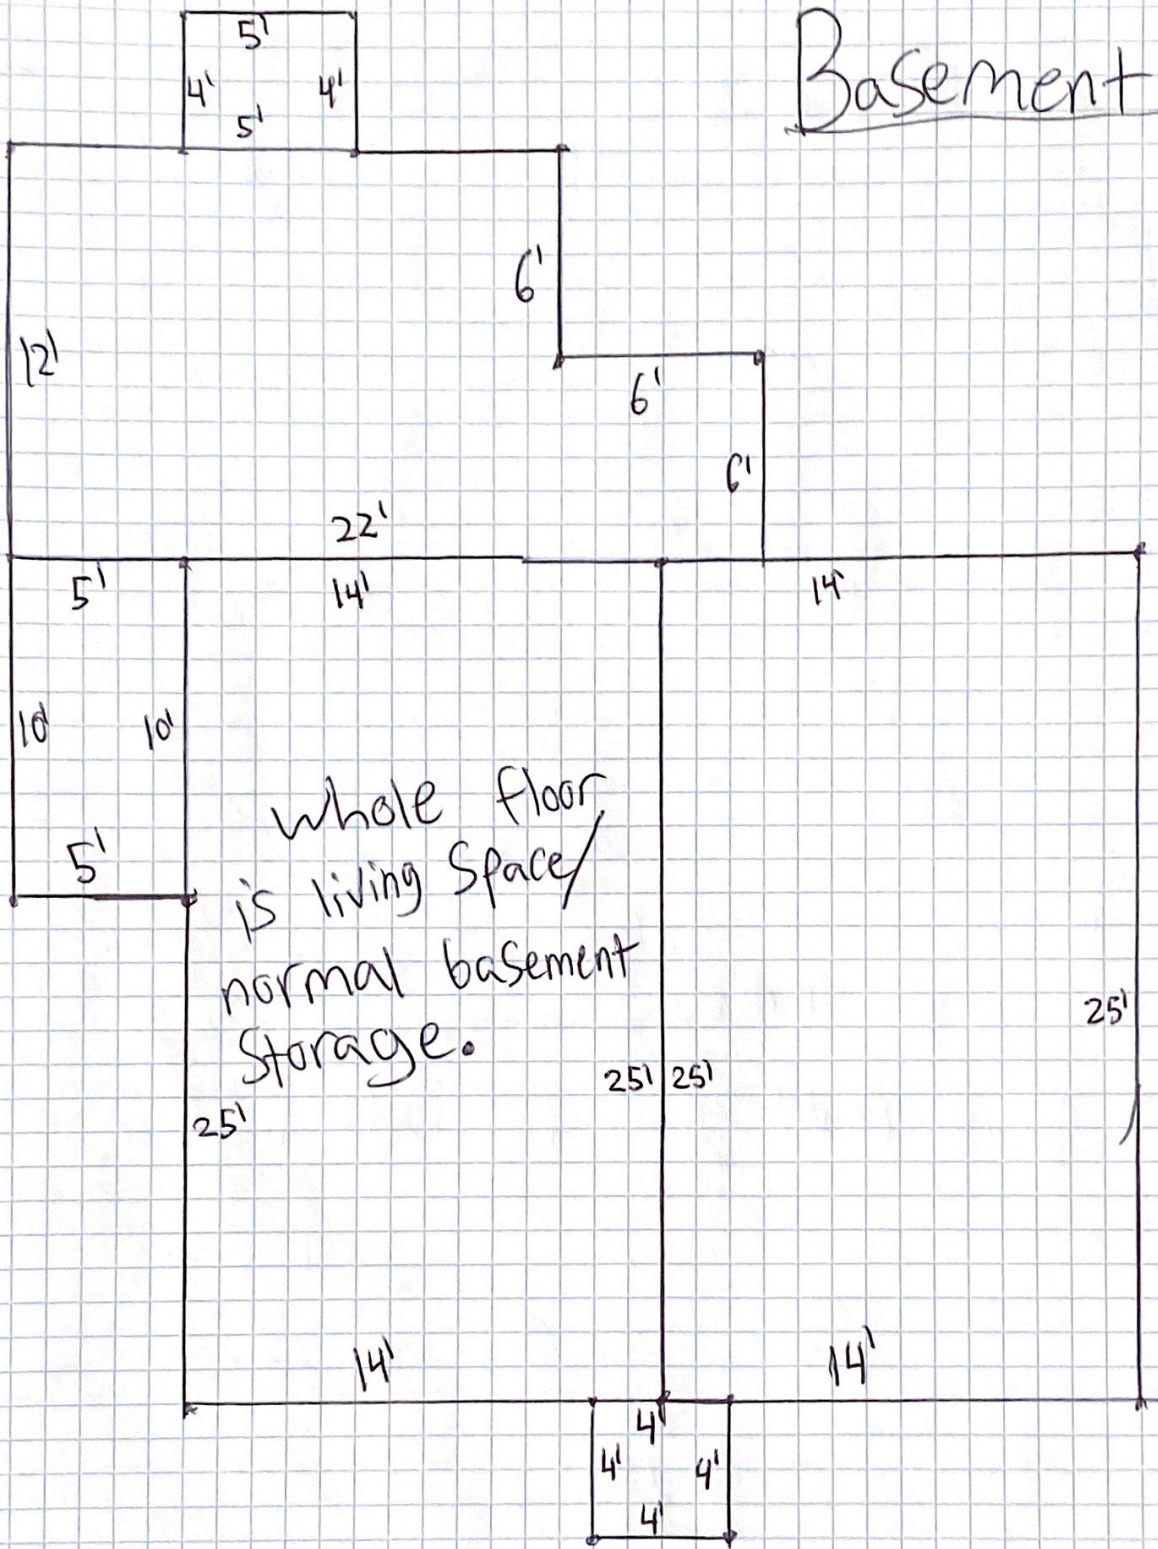 Basement
5'
4' 4'
5'
6'
12'
6'
6'
22'
5' 14' 14'
10' 10'
whole floor
is living Space/
normal basement
Storage.
5'
25'
25' 25'
25'
14' 14'
4'
4' 4'
4'